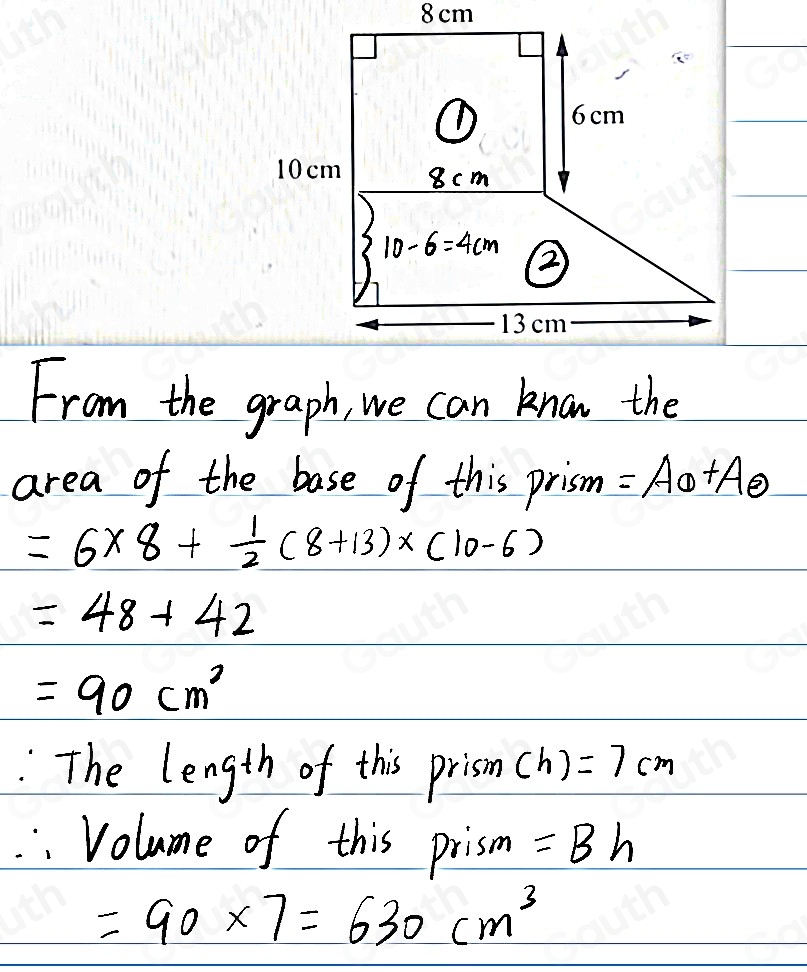 8 cm
①
6 cm
10 cm
8cm
10-6=4cm
②
13 cm
From the graph, we can know the
area of the base of this prism = A① + A②
= 6 × 8 + 1/2 (8+13) × (10-6)
= 48 + 42
= 90 cm²
∵ The length of this prism (h) = 7 cm
∴ Volume of this prism = B h
= 90 × 7 = 630 cm³
Gauth